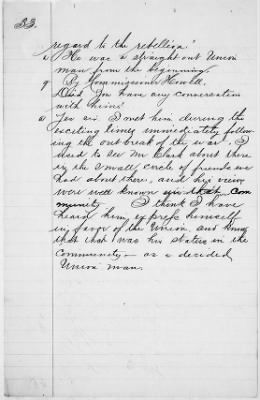 33.
regard to the rebellion?
a He was a straight out Union
man from the beginning.
q By Commissioner Howell.
Did you have any conversation
with him?
a Yes sir. I met him during the
exciting times immediately follow-
ing the out break of the war. I
used to see Mr Clark about there
in the small circle of friends we
had about there, and his views
were well known in that com
munity. I think I have
heard him express himself
in favor of the Union, and know
that that was his status in the
community — as a decided
Union man.